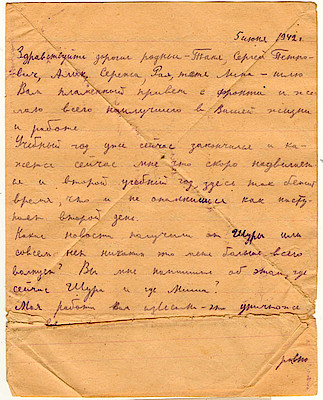 5 июня 1942 г.
Здравствуйте дорогие родные – Тася, Сергей Петро-
вич, Алик, Сережа, Рая, тетя – шлю
Вам пламенный привет с фронта и же-
лаю всего наилучшего в Вашей жизни
и работе.
Учебный год уже сейчас закончился и ка-
жется сейчас мне что скоро надвигает-
ся и второй учебный год здесь так бежит
время, что и не опомнишься как насту-
пает второй день.
Какие новости получили от Шуры или
совсем нет ничего это меня больше всего
волнует? Вы мне напишите об этом, где
сейчас Шура и где Миша?
Моя работа Вам известна – это уничтоже